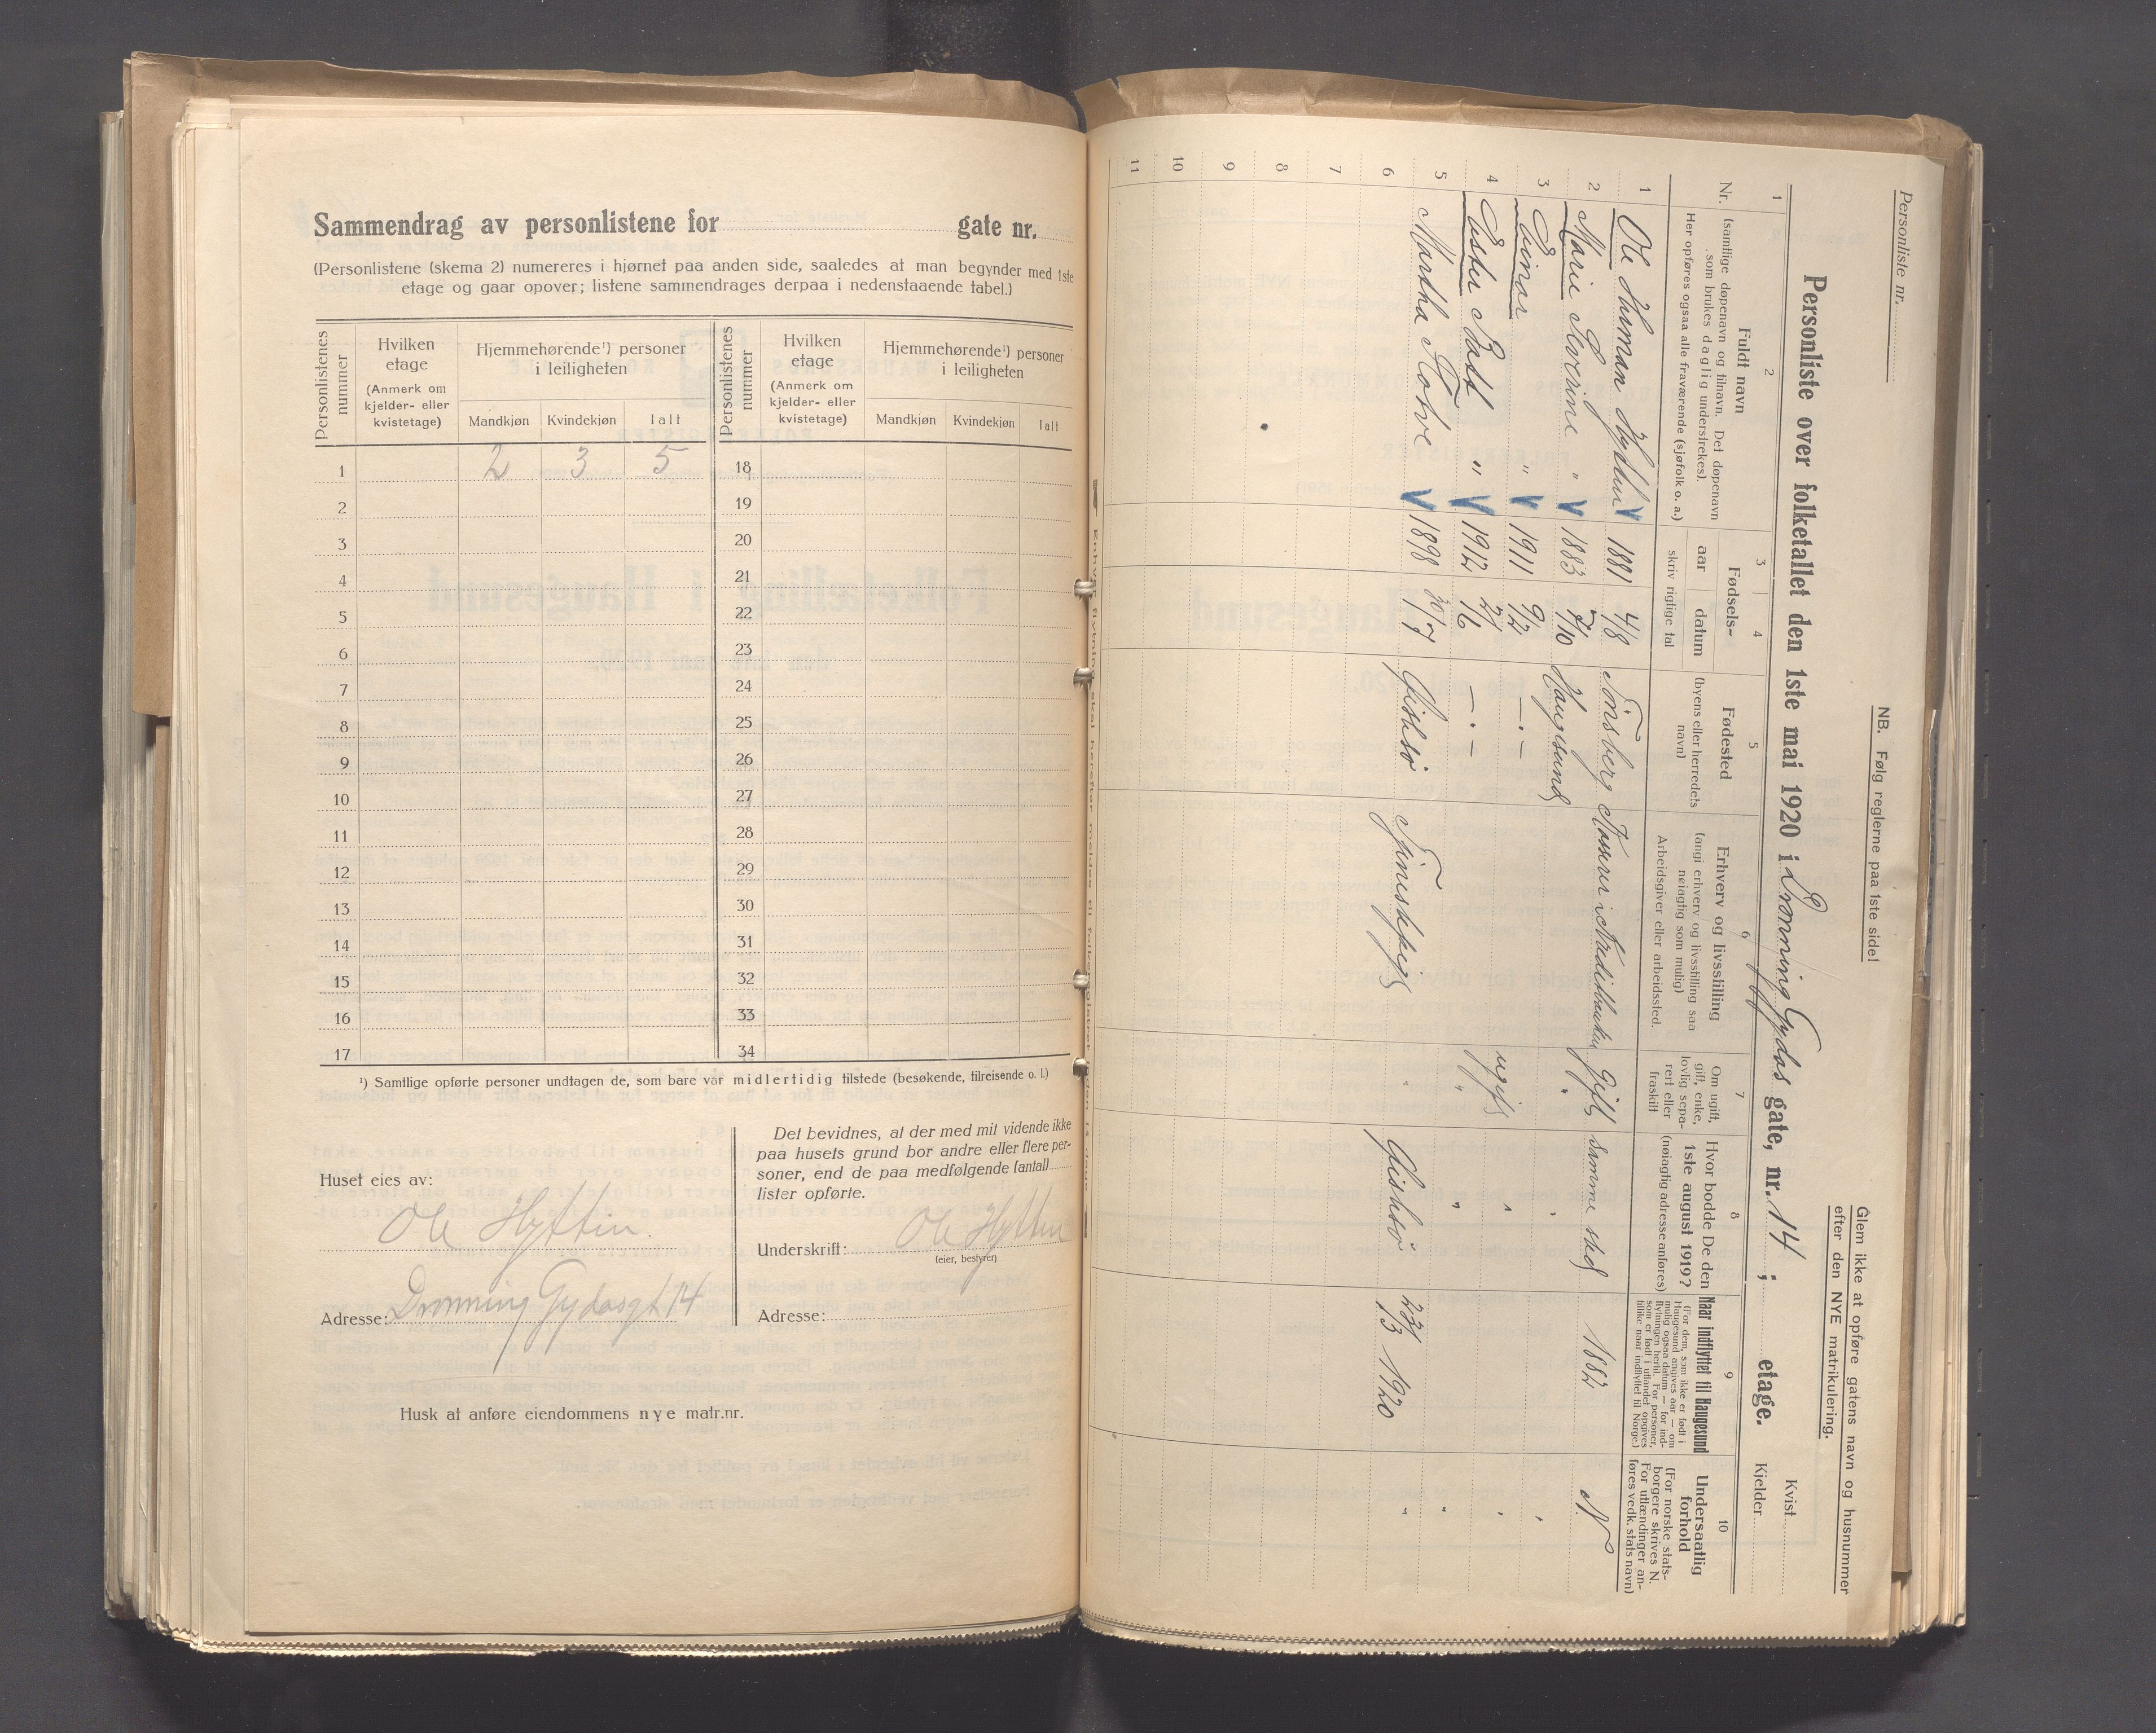 Sammendrag av personlistene for gate nr.
(Personlistene (skema 2) numereres i hjørnet paa anden side, saaledes at man begynder med 1ste
etage og gaar opover; listene sammendrages derpaa i nedenstaaende tabel.)
Personlistenes nummer
Hvilken etage (Anmerk om kjelder- eller kvistetage)
Hjemmehørende¹) personer i leiligheten
Mandkjøn Kvindekjøn Ialt
Personlistenes nummer
Hvilken etage (Anmerk om kjelder- eller kvistetage)
Hjemmehørende¹) personer i leiligheten
Mandkjøn Kvindekjøn Ialt
1 2 3 5 18
2 19
3 20
4 21
5 22
6 23
7 24
8 25
9 26
10 27
11 28
12 29
13 30
14 31
15 32
16 33
17 34
¹) Samtlige opførte personer undtagen de, som bare var midlertidig tilstede (besøkende, tilreisende o. l.)
Huset eies av:
Ole Hytten.
Adresse: Dronning Gydasgt 14
Det bevidnes, at der med mit vidende ikke
paa husets grund bor andre eller flere per-
soner, end de paa medfølgende (antal)
lister opførte.
Underskrift: Ole Hytten
(eier, bestyrer)
Adresse:
Husk at anføre eiendommens nye matr.nr.
Personliste nr.
NB. Følg reglerne paa 1ste side!
Glem ikke at opføre gatens navn og husnummer
efter den NYE matrikulering.
Personliste over folketallet den 1ste mai 1920 i Dronning Gydas gate, nr. 14 ; etage.
Kvist
Kjelder
1 2 3 4 5 6 7 8 9 10
Nr.
Fuldt navn
(samtlige døpenavn og tilnavn. Det døpenavn
som brukes daglig understrekes).
Her opføres ogsaa alle fraværende (sjøfolk o. a.)
Fødsels-
aar datum
skriv rigtige tal
Fødested
(byens eller herredets
navn)
Erhverv og livsstilling
(angi erhverv og livsstilling saa
nøiagtig som mulig)
Arbeidsgiver eller arbeidssted.
Om ugift,
gift, enke,
lovlig sepa-
rert eller
fraskilt
Hvor bodde De den
1ste august 1919?
(nøiagtig adresse anføres)
Naar indflyttet til Haugesund
(For dem, som ikke er født i
Haugesund angives aar — om
mulig ogsaa datum — for ind-
flytningen hertil. For personer,
som er født i utlandet opgives
tillike naar indflyttet til Norge.)
Undersaatlig
forhold
(For norske stats-
borgere skrives N.
For utlændinger an-
føres vedk. stats navn)
1 Ole Herman Hytten 1881 4/8 Tönsberg Kasserer i gift samme sted 1882 N
2 Marie Severine " 1883 7/10 Haugesund "
3 Einar " 1911 9/2 —.— ugift "
4 Ester " 1912 —.— " "
5 Martha 1898 30/7 Tjenestepige " 23/3 1920 "
6
7
8
9
10
11